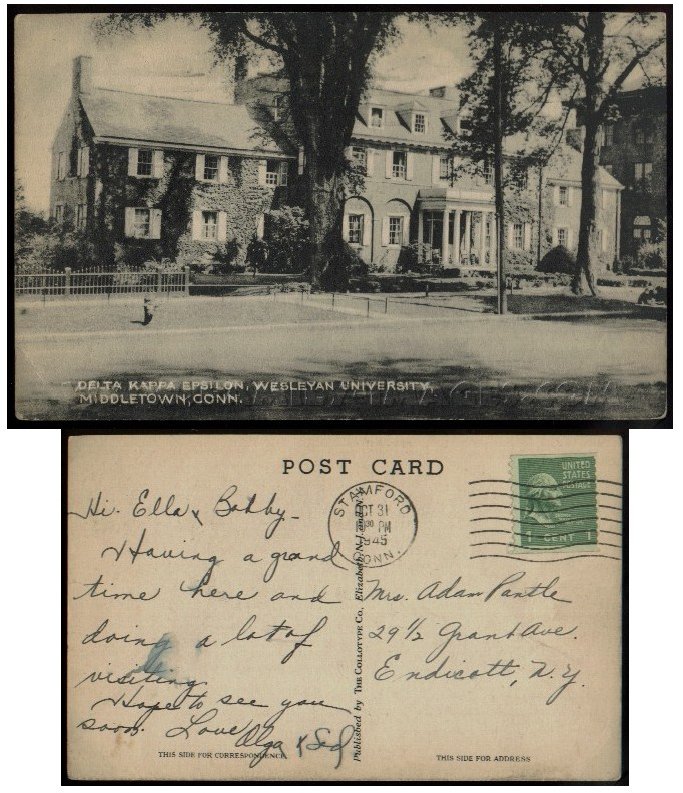 DELTA KAPPA EPSILON, WESLEYAN UNIVERSITY,
MIDDLETOWN, CONN.
POST CARD
Hi. Ella & Bobby -
Having a grand
time here and
doing a lot of
visiting.
Hope to see you
soon. Love
Olga & Sid
THIS SIDE FOR CORRESPONDENCE
Published by THE COLLOTYPE CO., Elizabeth, N. J. and N. Y.
STAMFORD
OCT 31
30 PM
1945
CONN.
UNITED
STATES
POSTAGE
1 CENT 1
Mrs. Adam Pantle
29 1/2 Grant Ave.
Endicott, N.Y.
THIS SIDE FOR ADDRESS